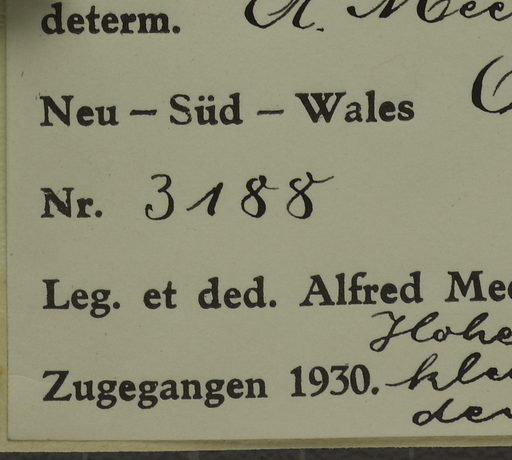 determ. A. Mee
Neu – Süd – Wales
Nr. 3188
Leg. et ded. Alfred Mee
Hohe
Zugegangen 1930. kle
der